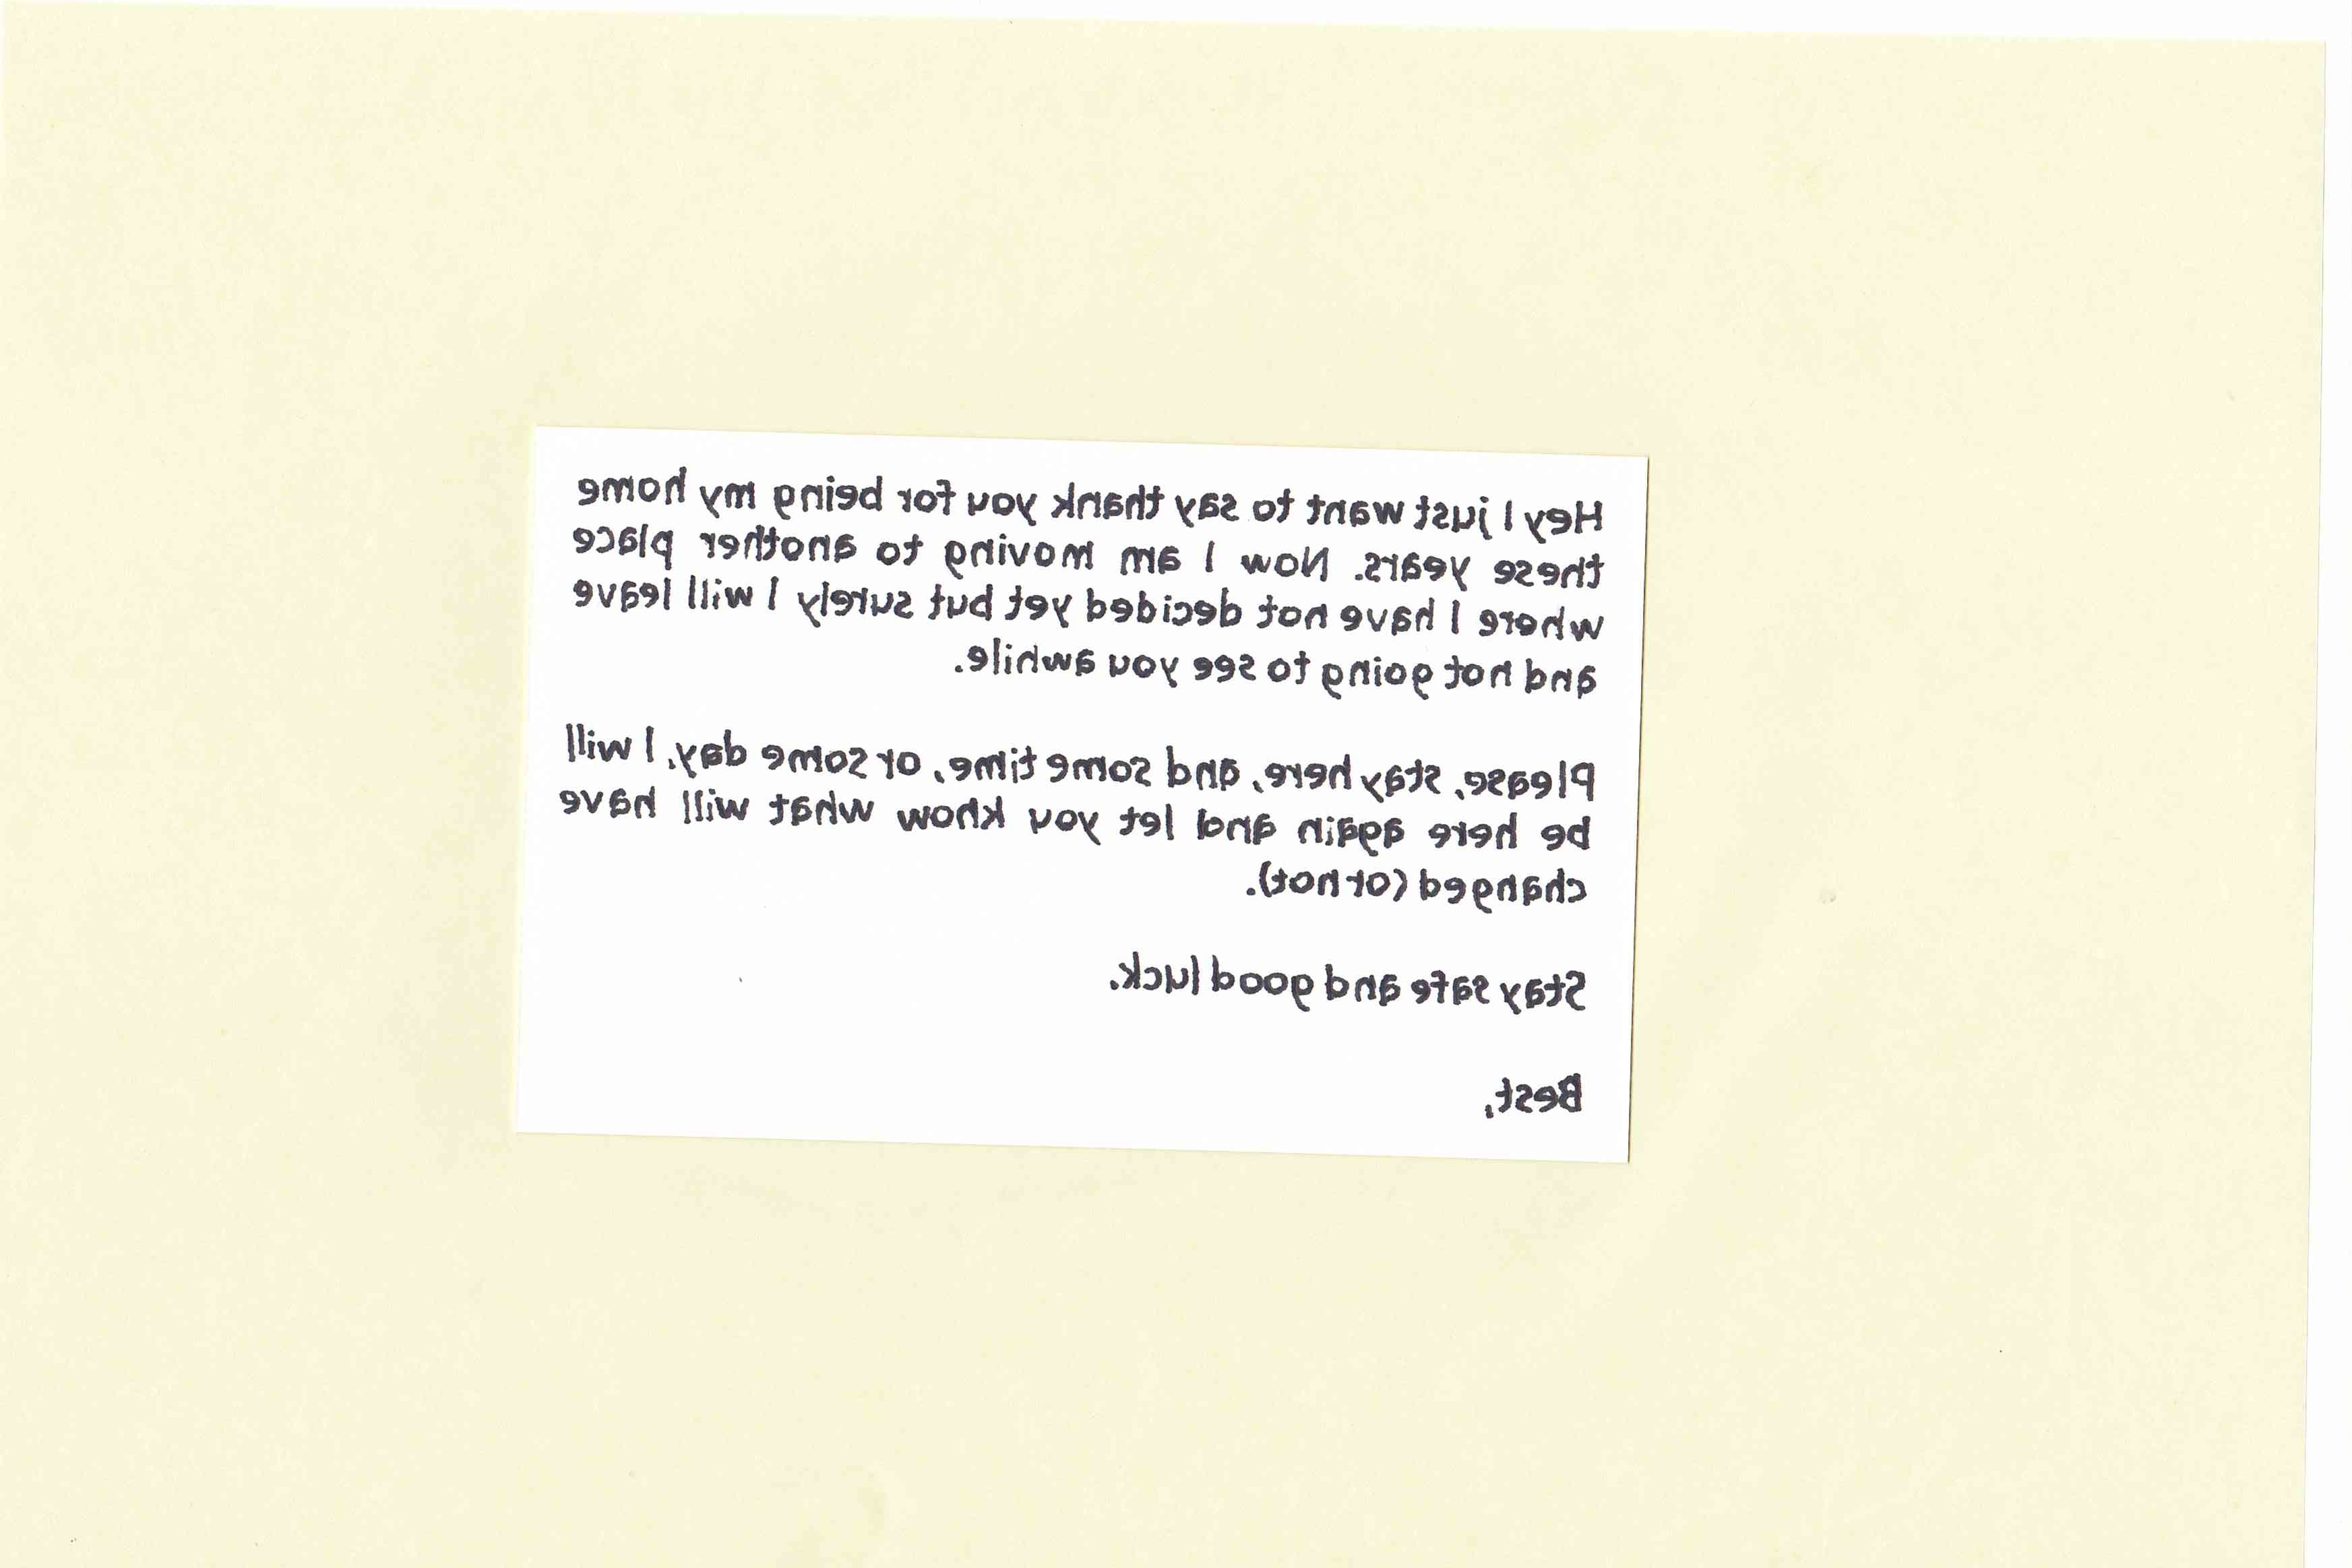 Hey I just want to say thank you for being my home
these years. Now I am moving to another place
where I have not decided yet but surely I will leave
and not going to see you awhile.
Please, stay here, and some time, or some day, I will
be here again and let you know what will have
changed (or not).
Stay safe and good luck.
Best,